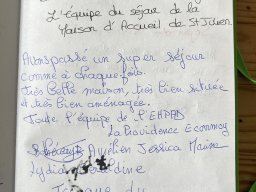 L'équipe du séjour de la
Maison d'Accueil de St Julien
Avons passé un super séjour
comme à chaque fois.
très belle maison, très bien située
et très bien aménagée.
Toute l'équipe de l'EHPAD
La Providence Ecommoy
Aurélien Jessica
Lydia